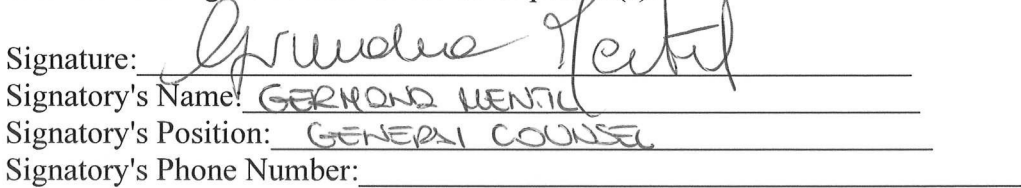 Signature:
Signatory's Name: GERMOND MENTIL
Signatory's Position: GENERAL COUNSEL
Signatory's Phone Number: